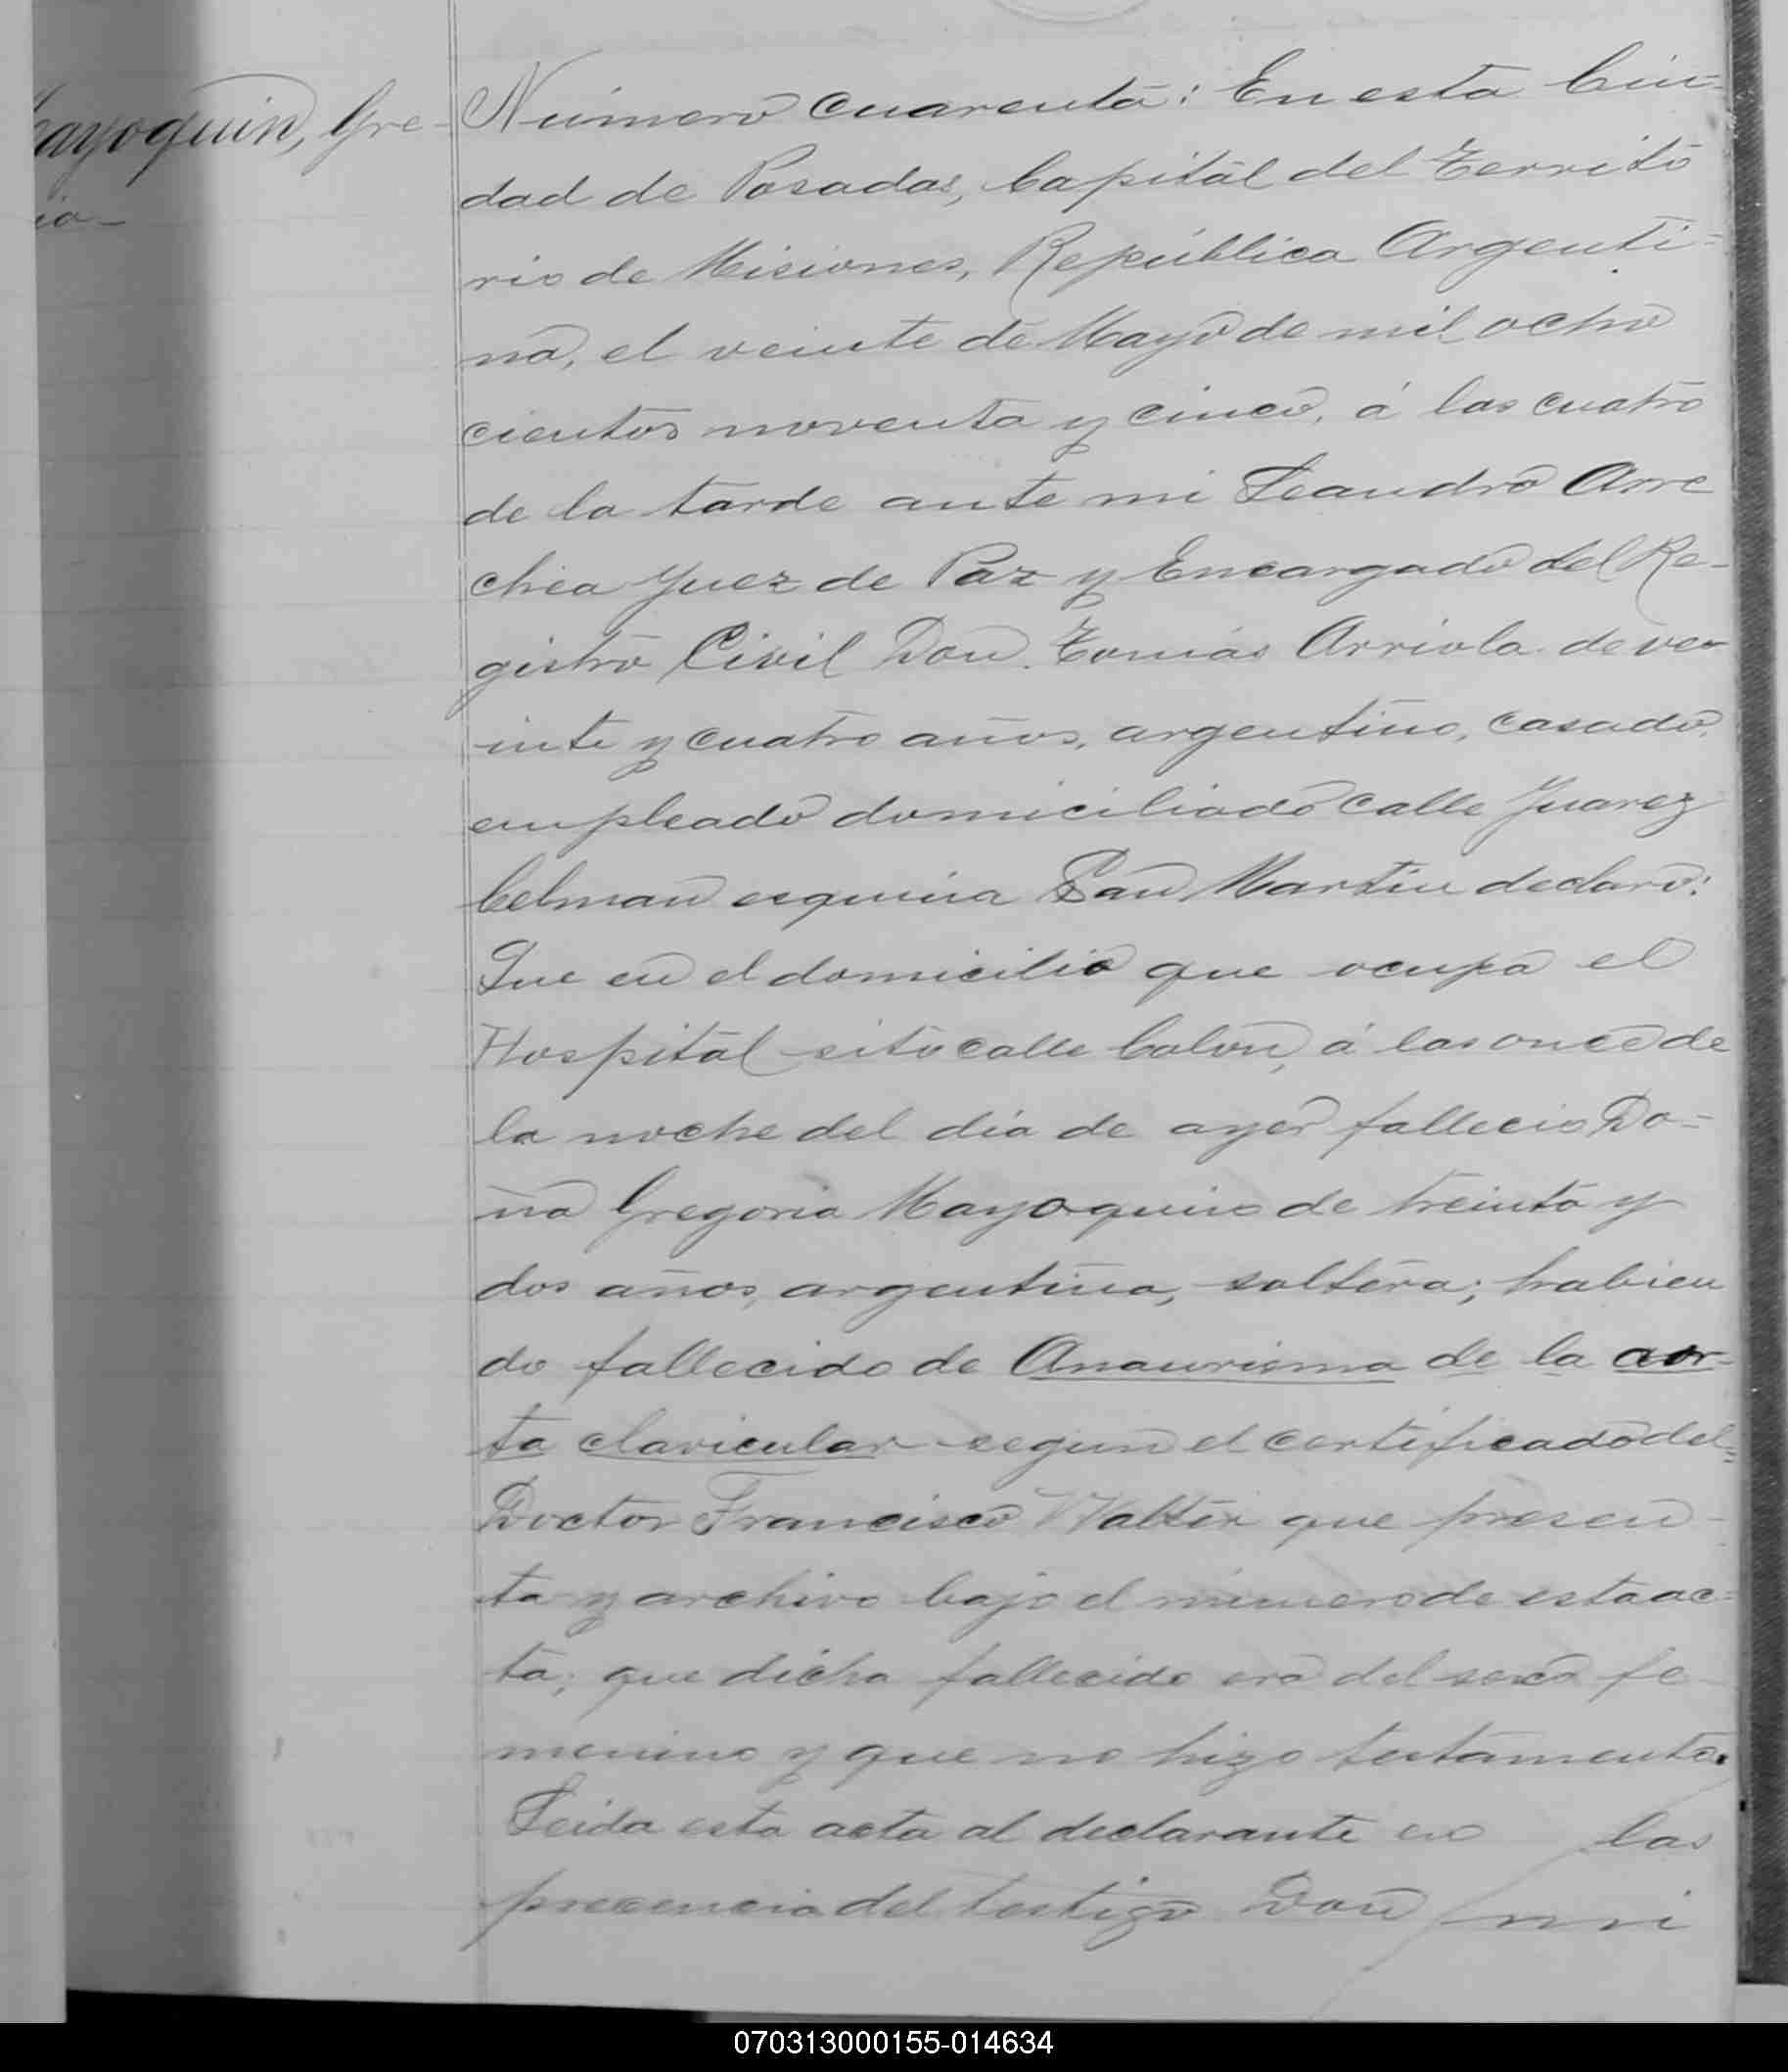 Mayoquin, Gre-
goria-
Número cuarenta: En esta Ciu-
dad de Posadas, Capital del Territo
rio de Misiones, República Argenti-
na, el veinte de Mayo de mil ocho
cientos noventa y cinco, á las cuatro
de la tarde ante mi Leandro Arre
chea Juez de Paz y Encargado del Re-
gistro Civil Don Tomás Arriola de ve-
inte y cuatro años, argentino, casado,
empleado domiciliado calle Juarez
Celman esquina San Martin declaró:
Que en el domicilio que ocupa el
Hospital sito calle Colon, á las once de
la noche del dia de ayer fallecio Do-
ña Gregoria Mayoquin de treinta y
dos años, argentina, soltera; habien
do fallecido de Anaurisma de la aor-
ta clavicular segun el certificado del
Doctor Francisco Walter que presen-
ta y archivo bajo el número de esta ac-
ta; que dicha fallecida era del sexo fe
menino y que no hizo testamento.
Leida esta acta al declarante en las
precencia del testigo Don
070313000155-014634